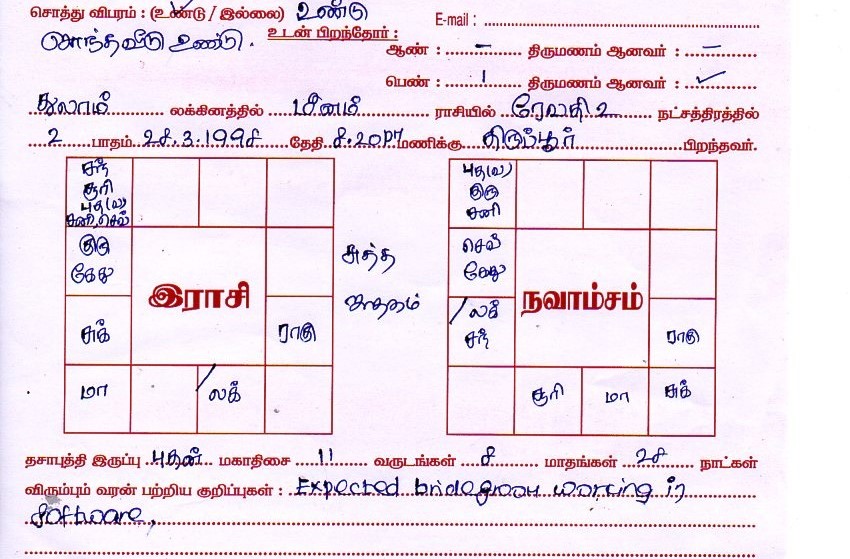 சொத்து விபரம் : (உண்டு / இல்லை) உண்டு E-mail :
சொந்தவீடு உண்டு. உடன் பிறந்தோர் :
ஆண் : – திருமணம் ஆனவர் : –
பெண் : 1 திருமணம் ஆனவர் : ✓
துலாம் லக்கினத்தில் மீனம் ராசியில் ரேவதி 2 நட்சத்திரத்தில்
2 பாதம் 28.3.1998 தேதி 8.20PM மணிக்கு திருப்பூர் பிறந்தவர்.
சந் புத(வ)
சூரி குரு
புத(வ) சனி
சனி, செவ்
குரு செவ்
கேது கேது
சுத்த
ஜாதகம்
இராசி நவாம்சம்
சுக் ராகு லக் ராகு
சந்
மா லக் சூரி மா சுக்
தசாபுத்தி இருப்பு புதன் மகாதிசை 11 வருடங்கள் 8 மாதங்கள் 28 நாட்கள்
விரும்பும் வரன் பற்றிய குறிப்புகள் : Expected bridegroom working in
Software,